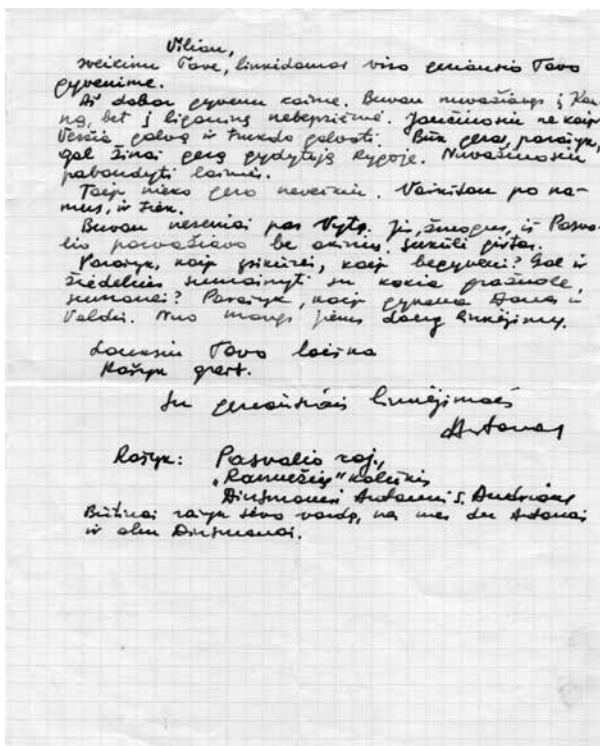 Viliau,
sveikinu Tave, linkėdamas viso geriausio Tavo
gyvenime.
Aš dabar gyvenu kaime. Buvau nuvažiavęs į Kau-
ną, bet į ligoninę nebepriėmė. Jaučiuosiu ne kaip.
Veržia galvą ir trukdo galvoti. Būk geras, parašyk,
gal žinai gerą gydytoją Rygoje. Nuvažiuosiu
pabandyti laimės.
Taip nieko gero neveikiu. Vaikštau po na-
mus, ir tiek.
Buvau neseniai pas Vytą. Jis, žmogus, iš Pasva-
lio parvažiavo be akinių. Sukūlė girtas.
Parašyk, kaip įsikūrei, kaip begyveni? Gal ir
žiedelius sumainyti su kokia gražuole,
sumanei? Parašyk, kaip gyvena Dana ir
Valdis. Nuo manęs jiems daug linkėjimų.
Lauksiu Tavo laiško
Rašyk greit.
Su geriausiais linkėjimais
Antanas
Rašyk: Pasvalio raj.,
„Ramučių" kolūkis
Dinsmonui Antanui s. Andriaus
Būtinai rašyk tėvo vardą, nes mes du Antanai
ir abu Dinsmonai.